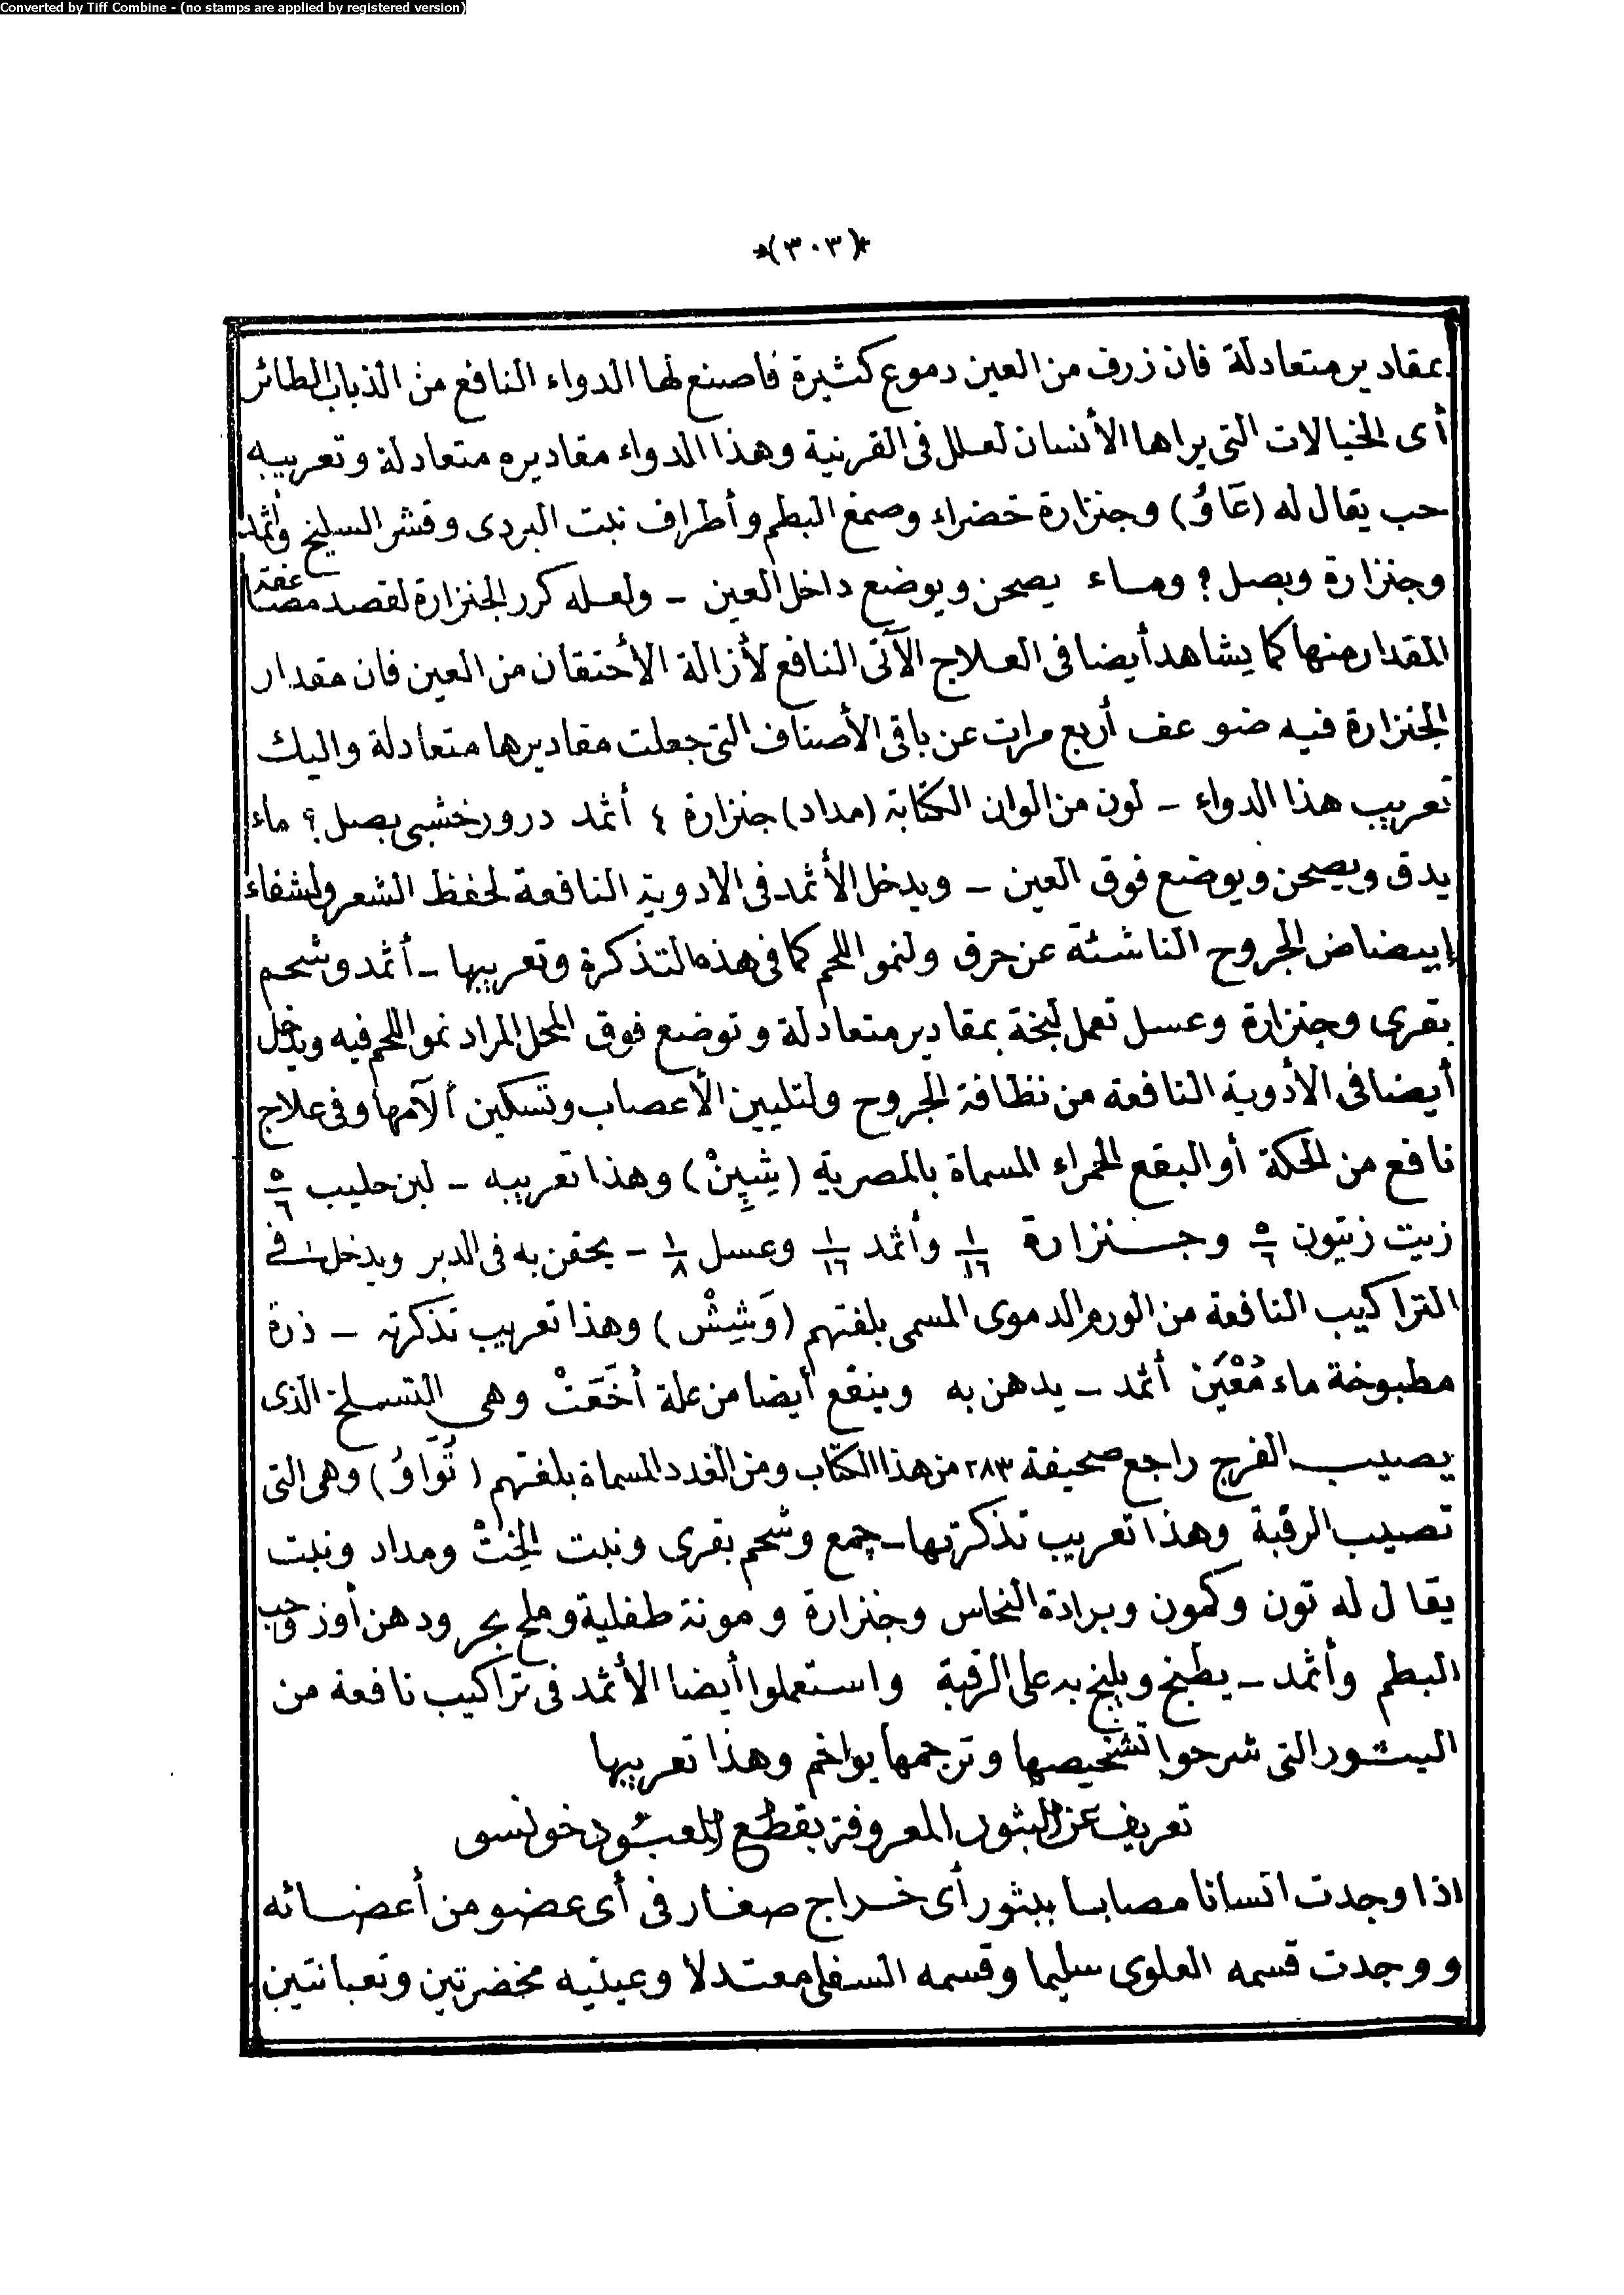 Converted by Tiff Combine - (no stamps are applied by registered version)
*(٣٠٣)*
بمقادير متعادلة فان زرف من العين دموع كثيرة فاصنع لها الدواء النافع من الذباب الطائر
أى الخيالات التى يراها الأنسان لعلل فى القرنية وهذا الدواء مقاديره متعادلة وتعريبه
حب يقال له (عَاوُ) وجنزارة خضراء وصمغ البطم وأطراف نبت البردى وقشر السليخ وأثمد
وجنزارة وبصل؟ وماء يصحن ويوضع داخل العين - ولعله كرر الجنزارة لقصد مضاعفة
المقدار منها كما يشاهد أيضا فى العلاج الآتى النافع لأزالة الأحتقان من العين فان مقدار
الجنزارة فيه ضوعف أربع مرات عن باقى الأصناف التى جعلت مقاديرها متعادلة واليك
تعريب هذا الدواء - لون من الوان الكتابة (مداد) جنزارة ٤ أثمد درور خشبى بصل؟ ماء
يدق ويصحن ويوضع فوق العين - ويدخل الأثمد فى الادوية النافعة لحفظ الشعر ولشفاء
إبيضاض الجروح الناشئة عن حرق ولنمو اللحم كما فى هذه التذكرة وتعريبها - أثمد وشحم
بقرى وجنزارة وعسل تعمل لبخة بمقادير متعادلة وتوضع فوق المحل المراد نمو اللحم فيه ويدخل
أيضا فى الأدوية النافعة من نظافة الجروح ولتليين الأعصاب وتسكين ألآمها وفى علاج
نافع من الحكة أو البقع الحمراء المسماة بالمصرية (شِپِنْ) وهذا تعريبه - لبن حليب ٥/٦
زيت زيتون ٥/٦ وجنزارة ١/١٦ وأثمد ١/١٦ وعسل ١/٨ - يحقن به فى الدبر ويدخل فى
التراكيب النافعة من الورم الدموى المسمى بلغتهم (وَشِيشْ) وهذا تعريب تذكرته - ذرة
مطبوخة ماء مُعْيَنْ أثمد - يدهن به وينفع أيضا من علة أخَعَتْ وهى التسلخ الذى
يصيب الفرج راجع صحيفة ٢٨٣ من هذا الكتاب ومن الغدد المسماة بلغتهم (تَوَاوُ) وهى التى
تصيب الرقبة وهذا تعريب تذكرتها - جمع وشحم بقرى ونبت الخِتْ ومداد ونبت
يقال له تون وكمون وبرادة النحاس وجنزارة ومونة طفلية وملح بحر ودهن أوز وحب
البطم وأثمد - يطبخ ويلبخ به على الرقبة واستعملوا أيضا الأثمد فى تراكيب نافعة من
البثور التى شرحوا تشخيصها وترجمها يواخم وهذا تعريبها
تعريف عن البثور المعروفة بقطع المعبود خونسو
اذا وجدت انسانا مصابا ببثور أى خراج صغار فى أى عضو من أعضائه
ووجدت قسمه العلوى سليما وقسمه السفلى معتدلا وعينيه مخضرتين وتعبانتين